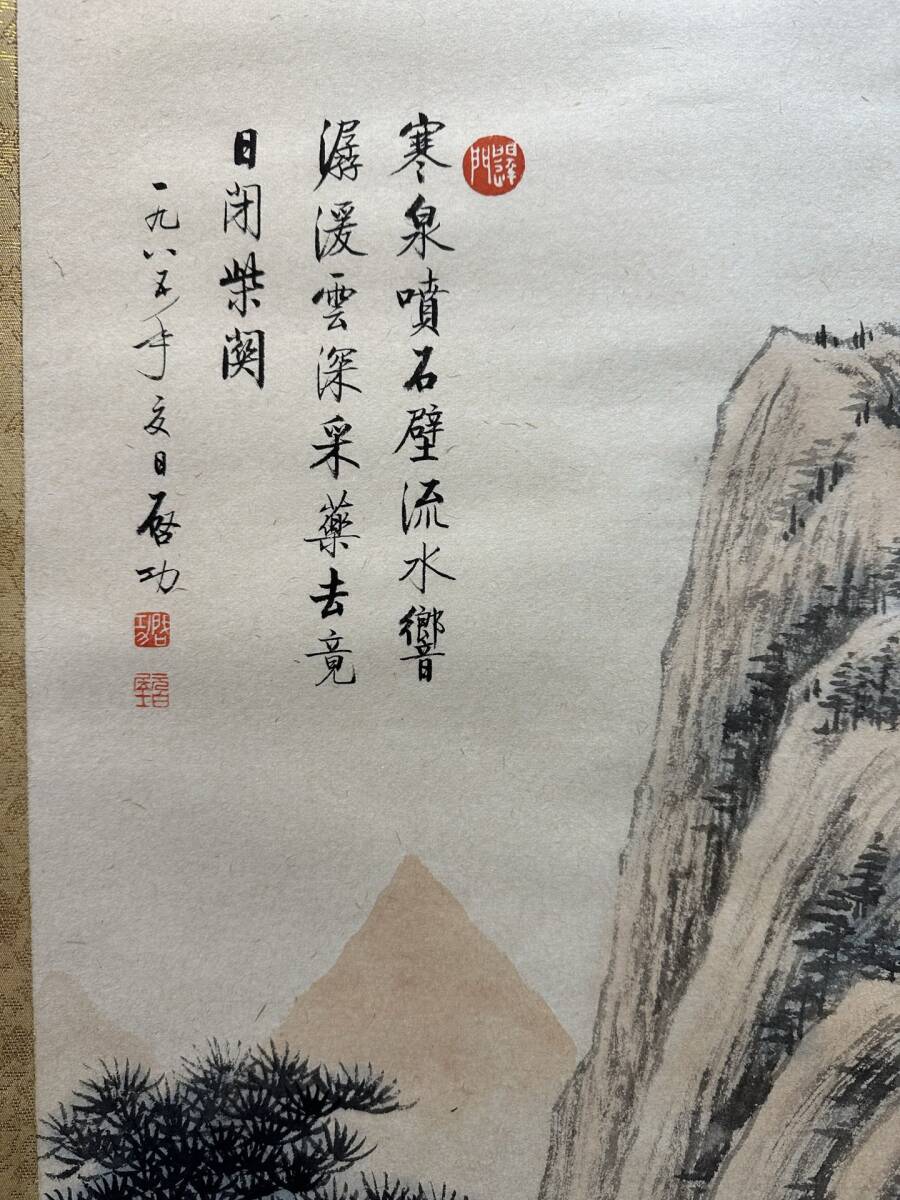 寒泉噴石壁流水響
潺湲雲深采藥去竟
日閉柴関
一九八五年夏日启功
启功
元白